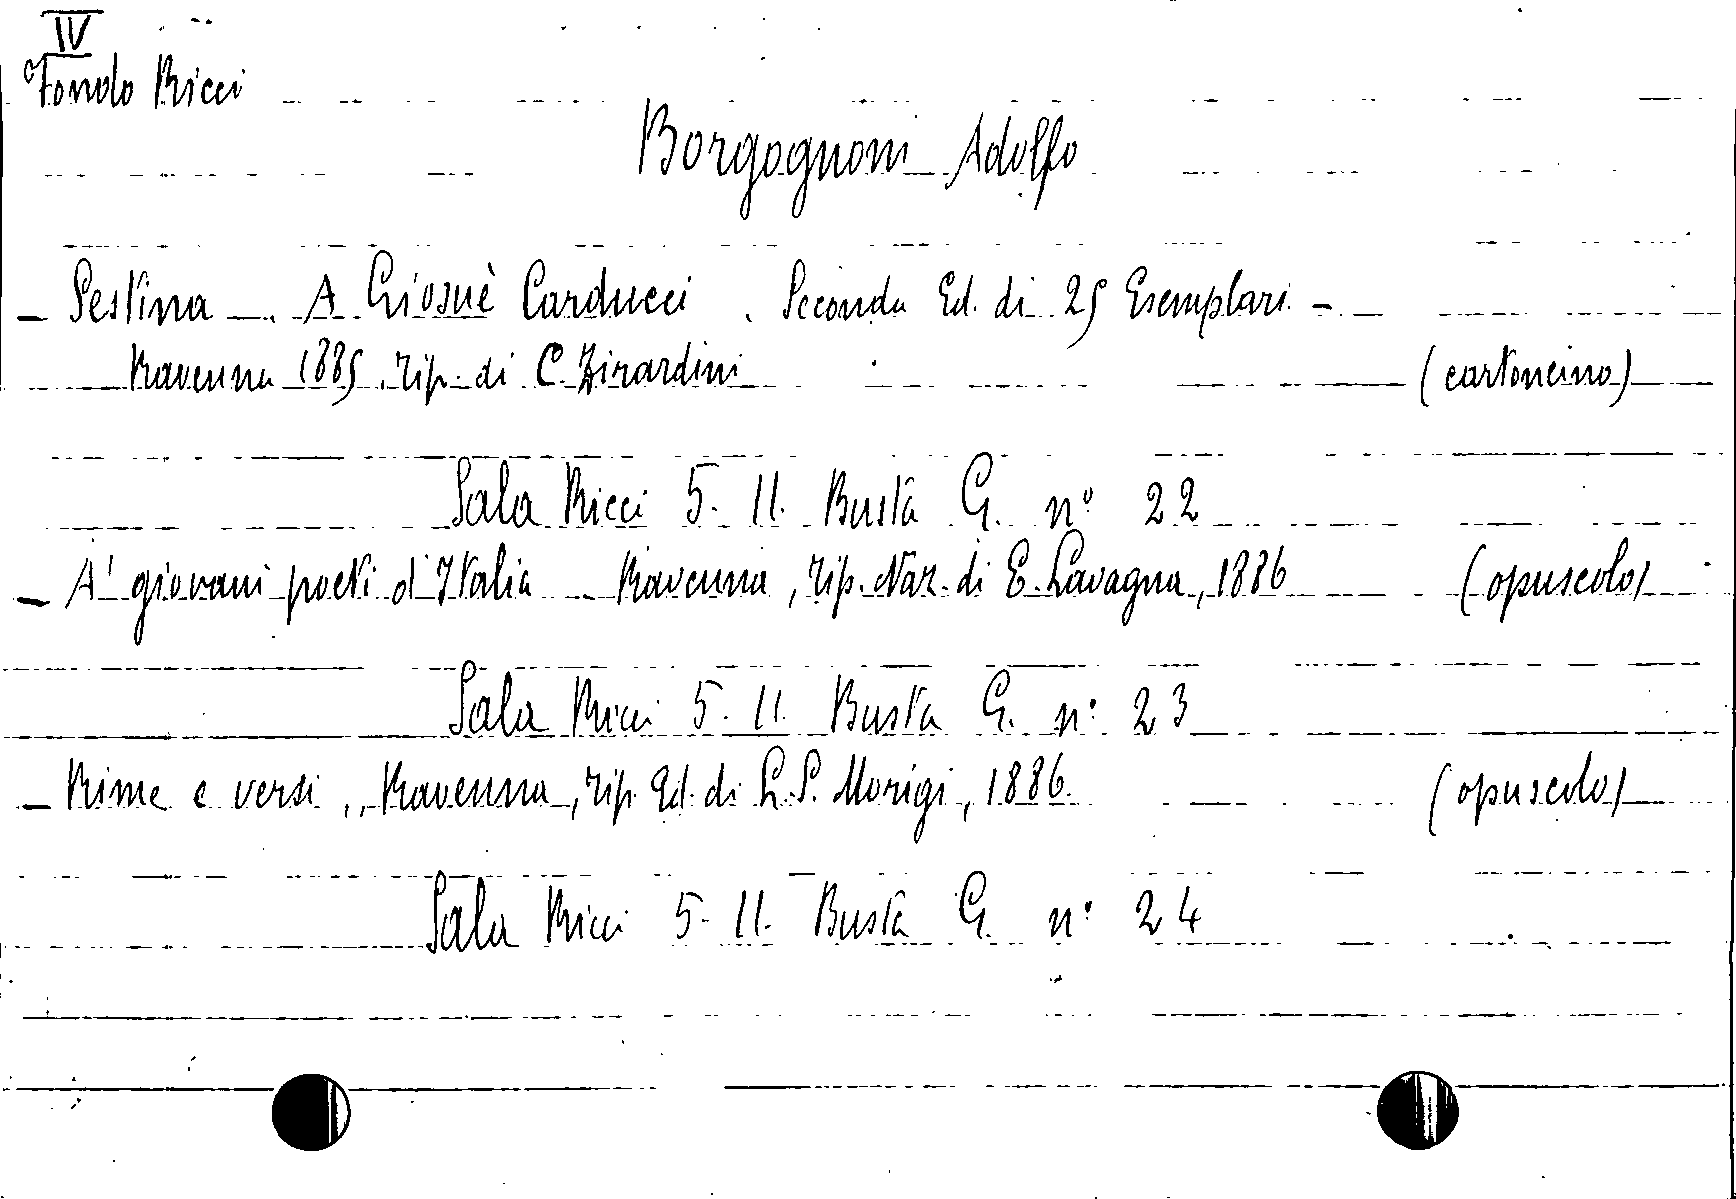 IV
Fondo Ricci
Borgognoni Adolfo
- Sestina - A Giosuè Carducci. Seconda Ed. di 25 Esemplari -
Ravenna 1885, Tip. di C. Zirardini (cartoncino)
Sala Ricci 5. 11. Busta G. n° 22
- A' giovani poeti d'Italia - Ravenna, Tip. Naz. di E. Lavagna, 1886 (opuscolo)
Sala Ricci 5. 11. Busta G. n° 23
- Rime e versi, Ravenna, Tip. Ed. di L. P. Morigi, 1886. (opuscolo)
Sala Ricci 5. 11. Busta G. n° 24